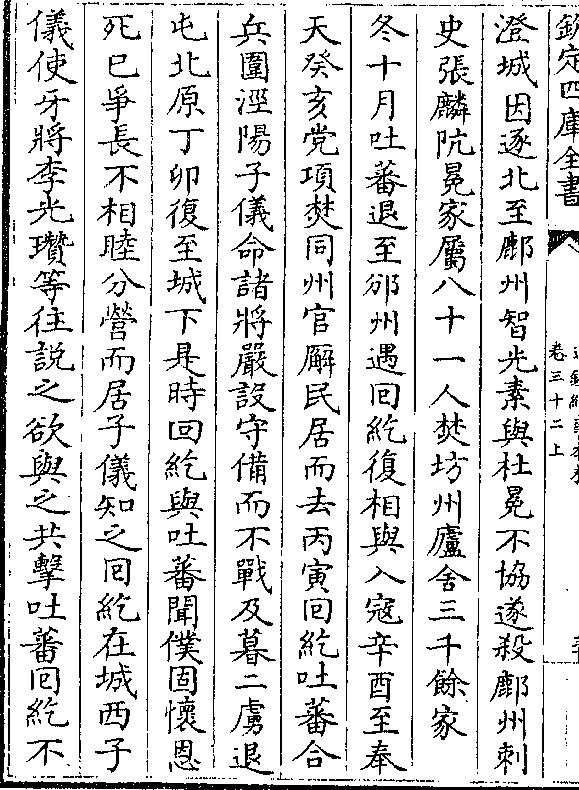 欽定四庫全書
卷三十二上
澄城因逐北至鄜州智光素與杜冕不協遂殺鄜州刺
史張麟阬冕家屬八十一人焚坊州廬舍三千餘家
冬十月吐蕃退至邠州遇回紇復相與入寇辛酉至奉
天癸亥党項焚同州官廨民居而去丙寅回紇吐蕃合
兵圍涇陽子儀命諸將嚴設守備而不戰及暮二虜退
屯北原丁卯復至城下是時回紇與吐蕃聞僕固懷恩
死已爭長不相睦分營而居子儀知之回紇在城西子
儀使牙將李光瓚等往説之欲與之共擊吐蕃回紇不